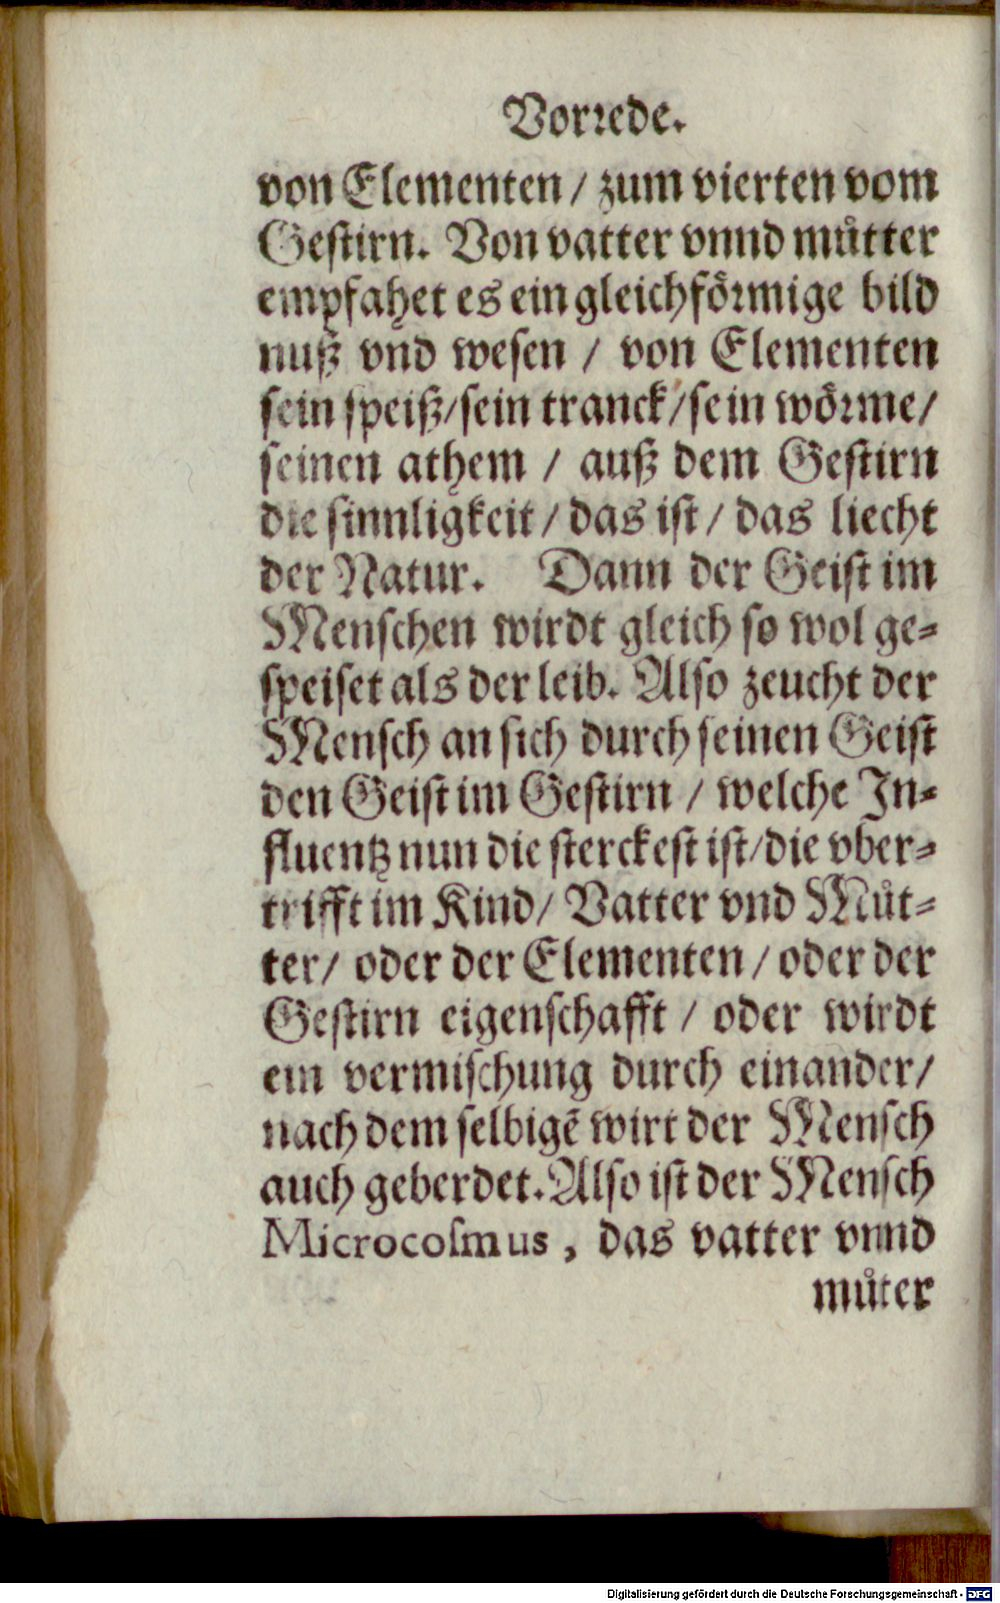 Vorꝛede.
von Elementen / zum vierten vom
Geſtirn. Von vatter vnnd muͤtter
empfahet es ein gleichfoͤꝛmige bild
nuß vnd weſen / von Elementen
ſein ſpeiß/ſein tranck/ſein woͤꝛme/
ſeinen athem / auß dem Geſtirn
die ſinnligkeit / das iſt / das liecht
der Natur. Dann der Geiſt im
Menſchen wirdt gleich ſo wol ge⸗
ſpeiſet als der leib. Alſo zeucht der
Menſch an ſich durch ſeinen Geiſt
den Geiſt im Geſtirn / welche In⸗
fluentz nun die ſterckeſt iſt/die vber⸗
trifft im Kind/ Vatter vnd Muͤt⸗
ter/ oder der Elementen / oder der
Geſtirn eigenſchafft / oder wirdt
ein vermiſchung durch einander/
nach dem ſelbigẽ wirt der Menſch
auch geberdet. Alſo iſt der Menſch
Microcoſmus, das vatter vnnd
muͤter
Digitalisierung gefördert durch die Deutsche Forschungsgemeinschaft - DFG